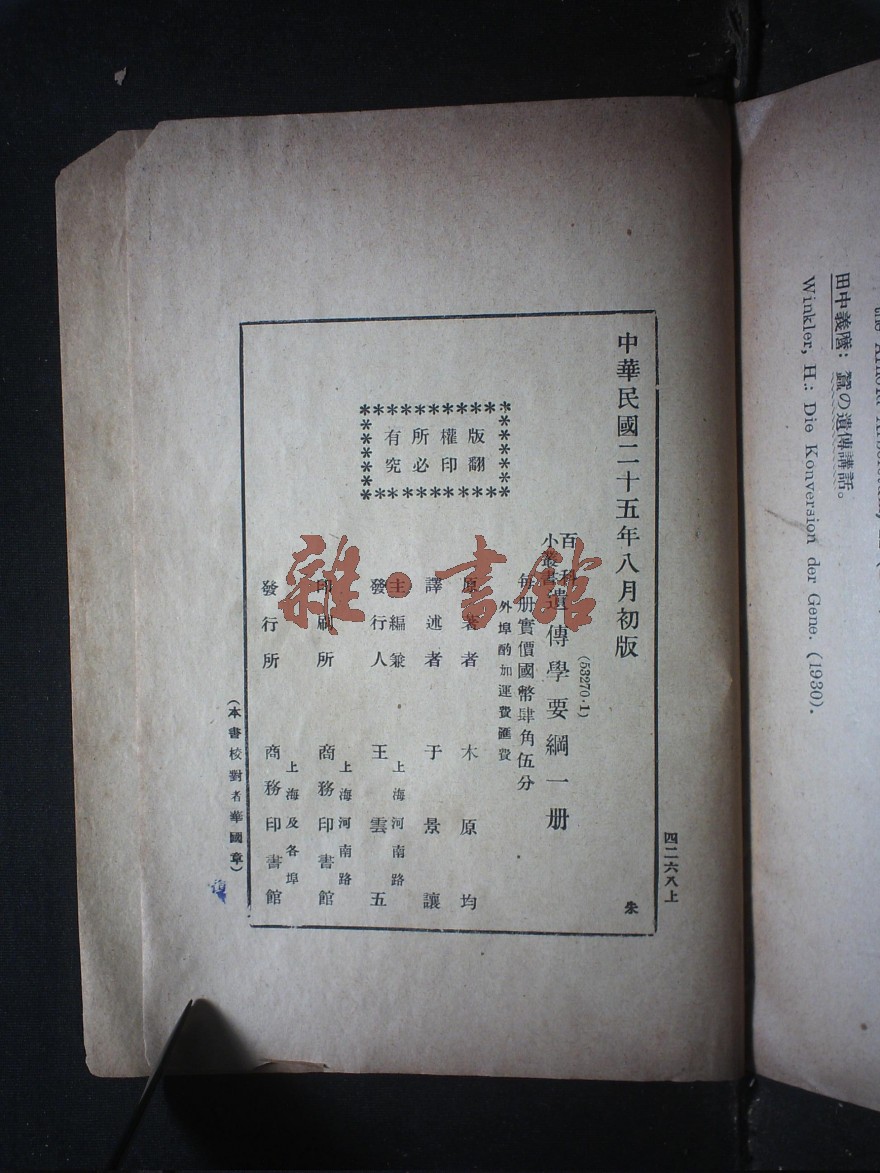 田中義麿：蠶の遺傳講話。
Winkler, H.: Die Konversion der Gene. (1930).
四二六八上
中華民國二十五年八月初版
朱
(53270·1)
百科小叢書 遺傳學要綱一册
每册實價國幣肆角伍分
外埠酌加運費匯費
版權所有
翻印必究
原著者 木原均
譯述者 于景讓
主編兼發行人 王雲五
上海河南路
印刷所 商務印書館
上海河南路
發行所 商務印書館
上海及各埠
(本書校對者華國章)
雜·書館